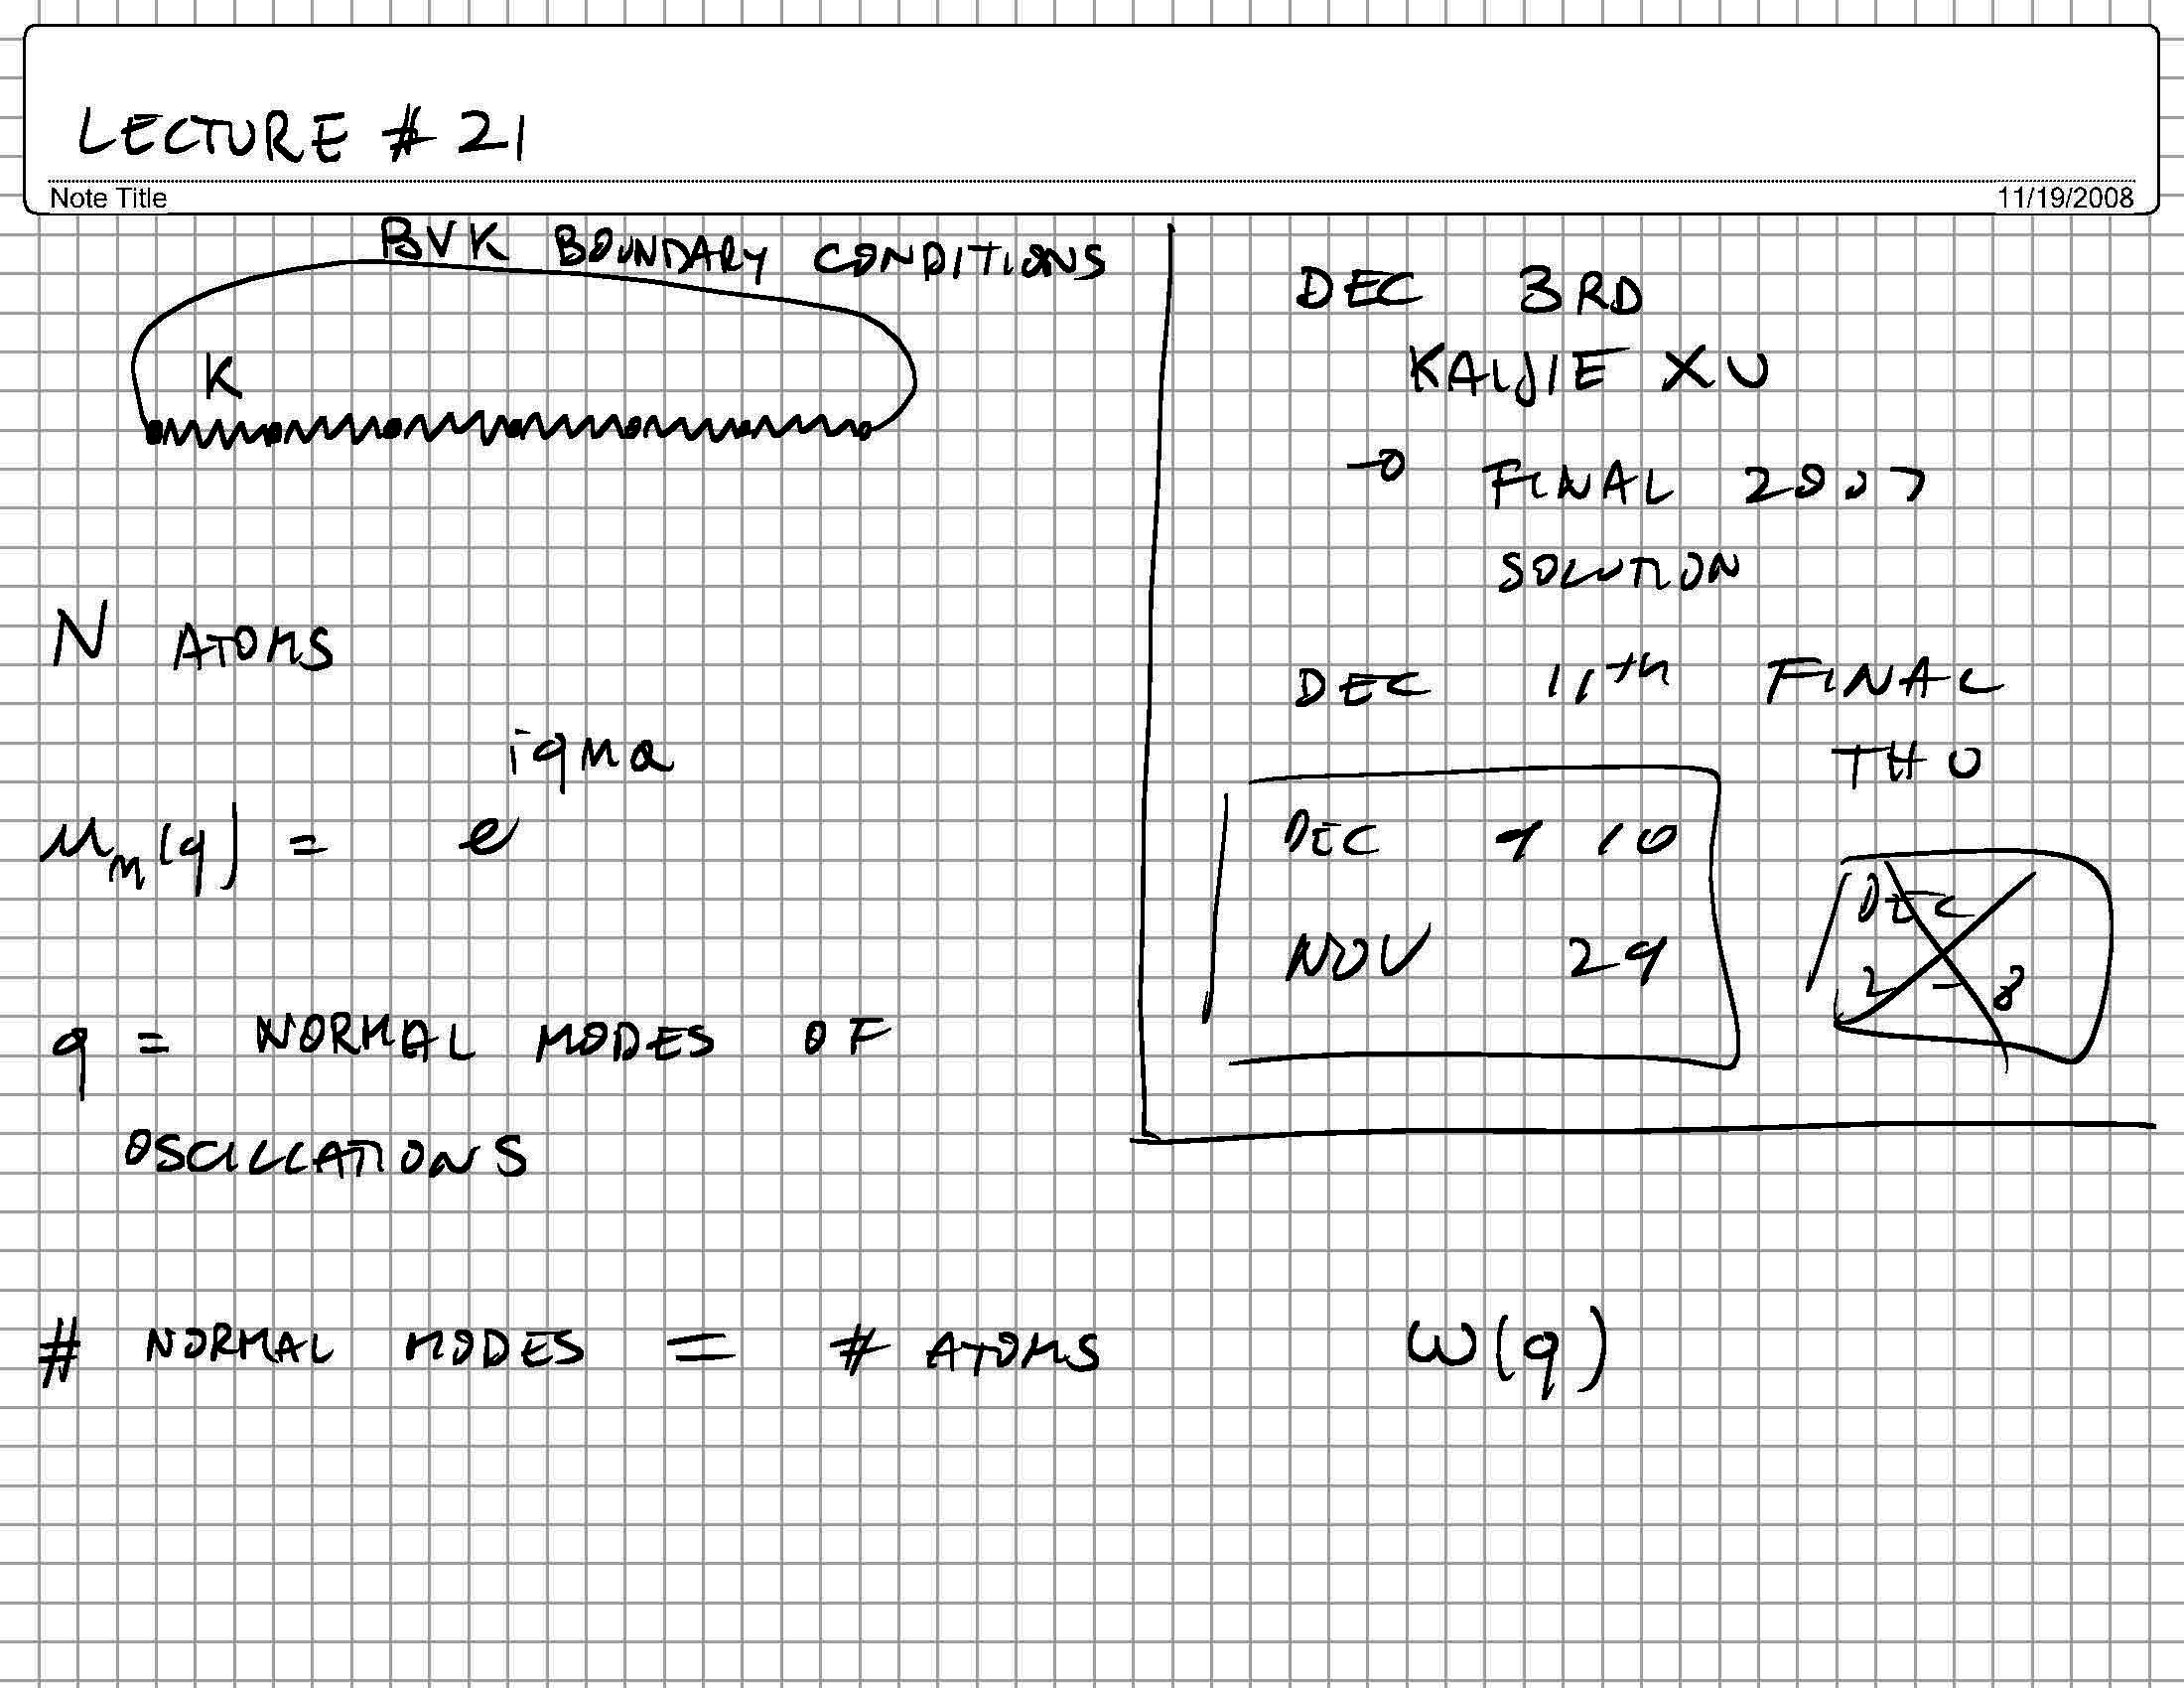 LECTURE # 21
Note Title
11/19/2008
BVK BOUNDARY CONDITIONS
K
N ATOMS
u_n(q) = e^{iqna}
q = NORMAL MODES OF
OSCILLATIONS
# NORMAL MODES = # ATOMS ω(q)
DEC 3RD
KAIJIE XU
→ FINAL 2007
SOLUTION
DEC 11th FINAL
THU
DEC 9 10
NOV 29
DEC
2 - 8